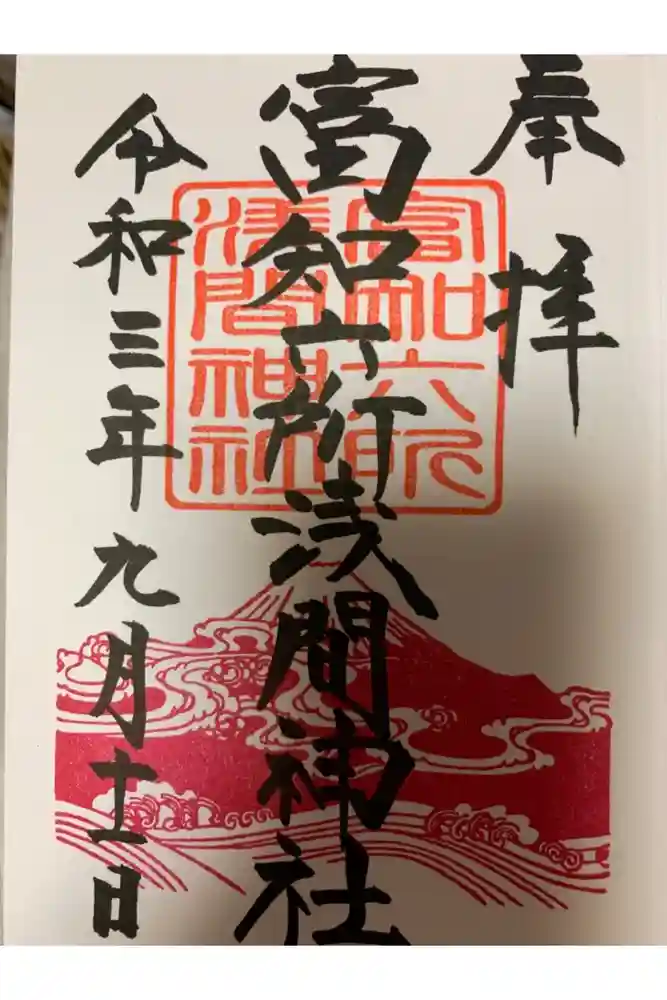 奉拝
富知六所浅間神社
令和三年九月十一日
富知六所
浅間神社